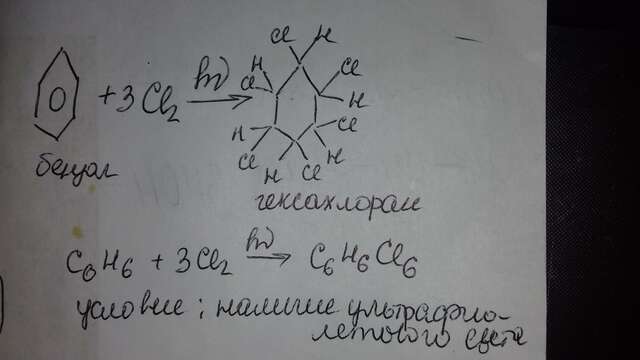 Cl H
H Cl
+ 3Cl₂ hν → Cl H
H Cl
Cl H
H Cl
бензол
гексахлоран
C₆H₆ + 3Cl₂ hν → C₆H₆Cl₆
условие: наличие ультрафио-
летового света